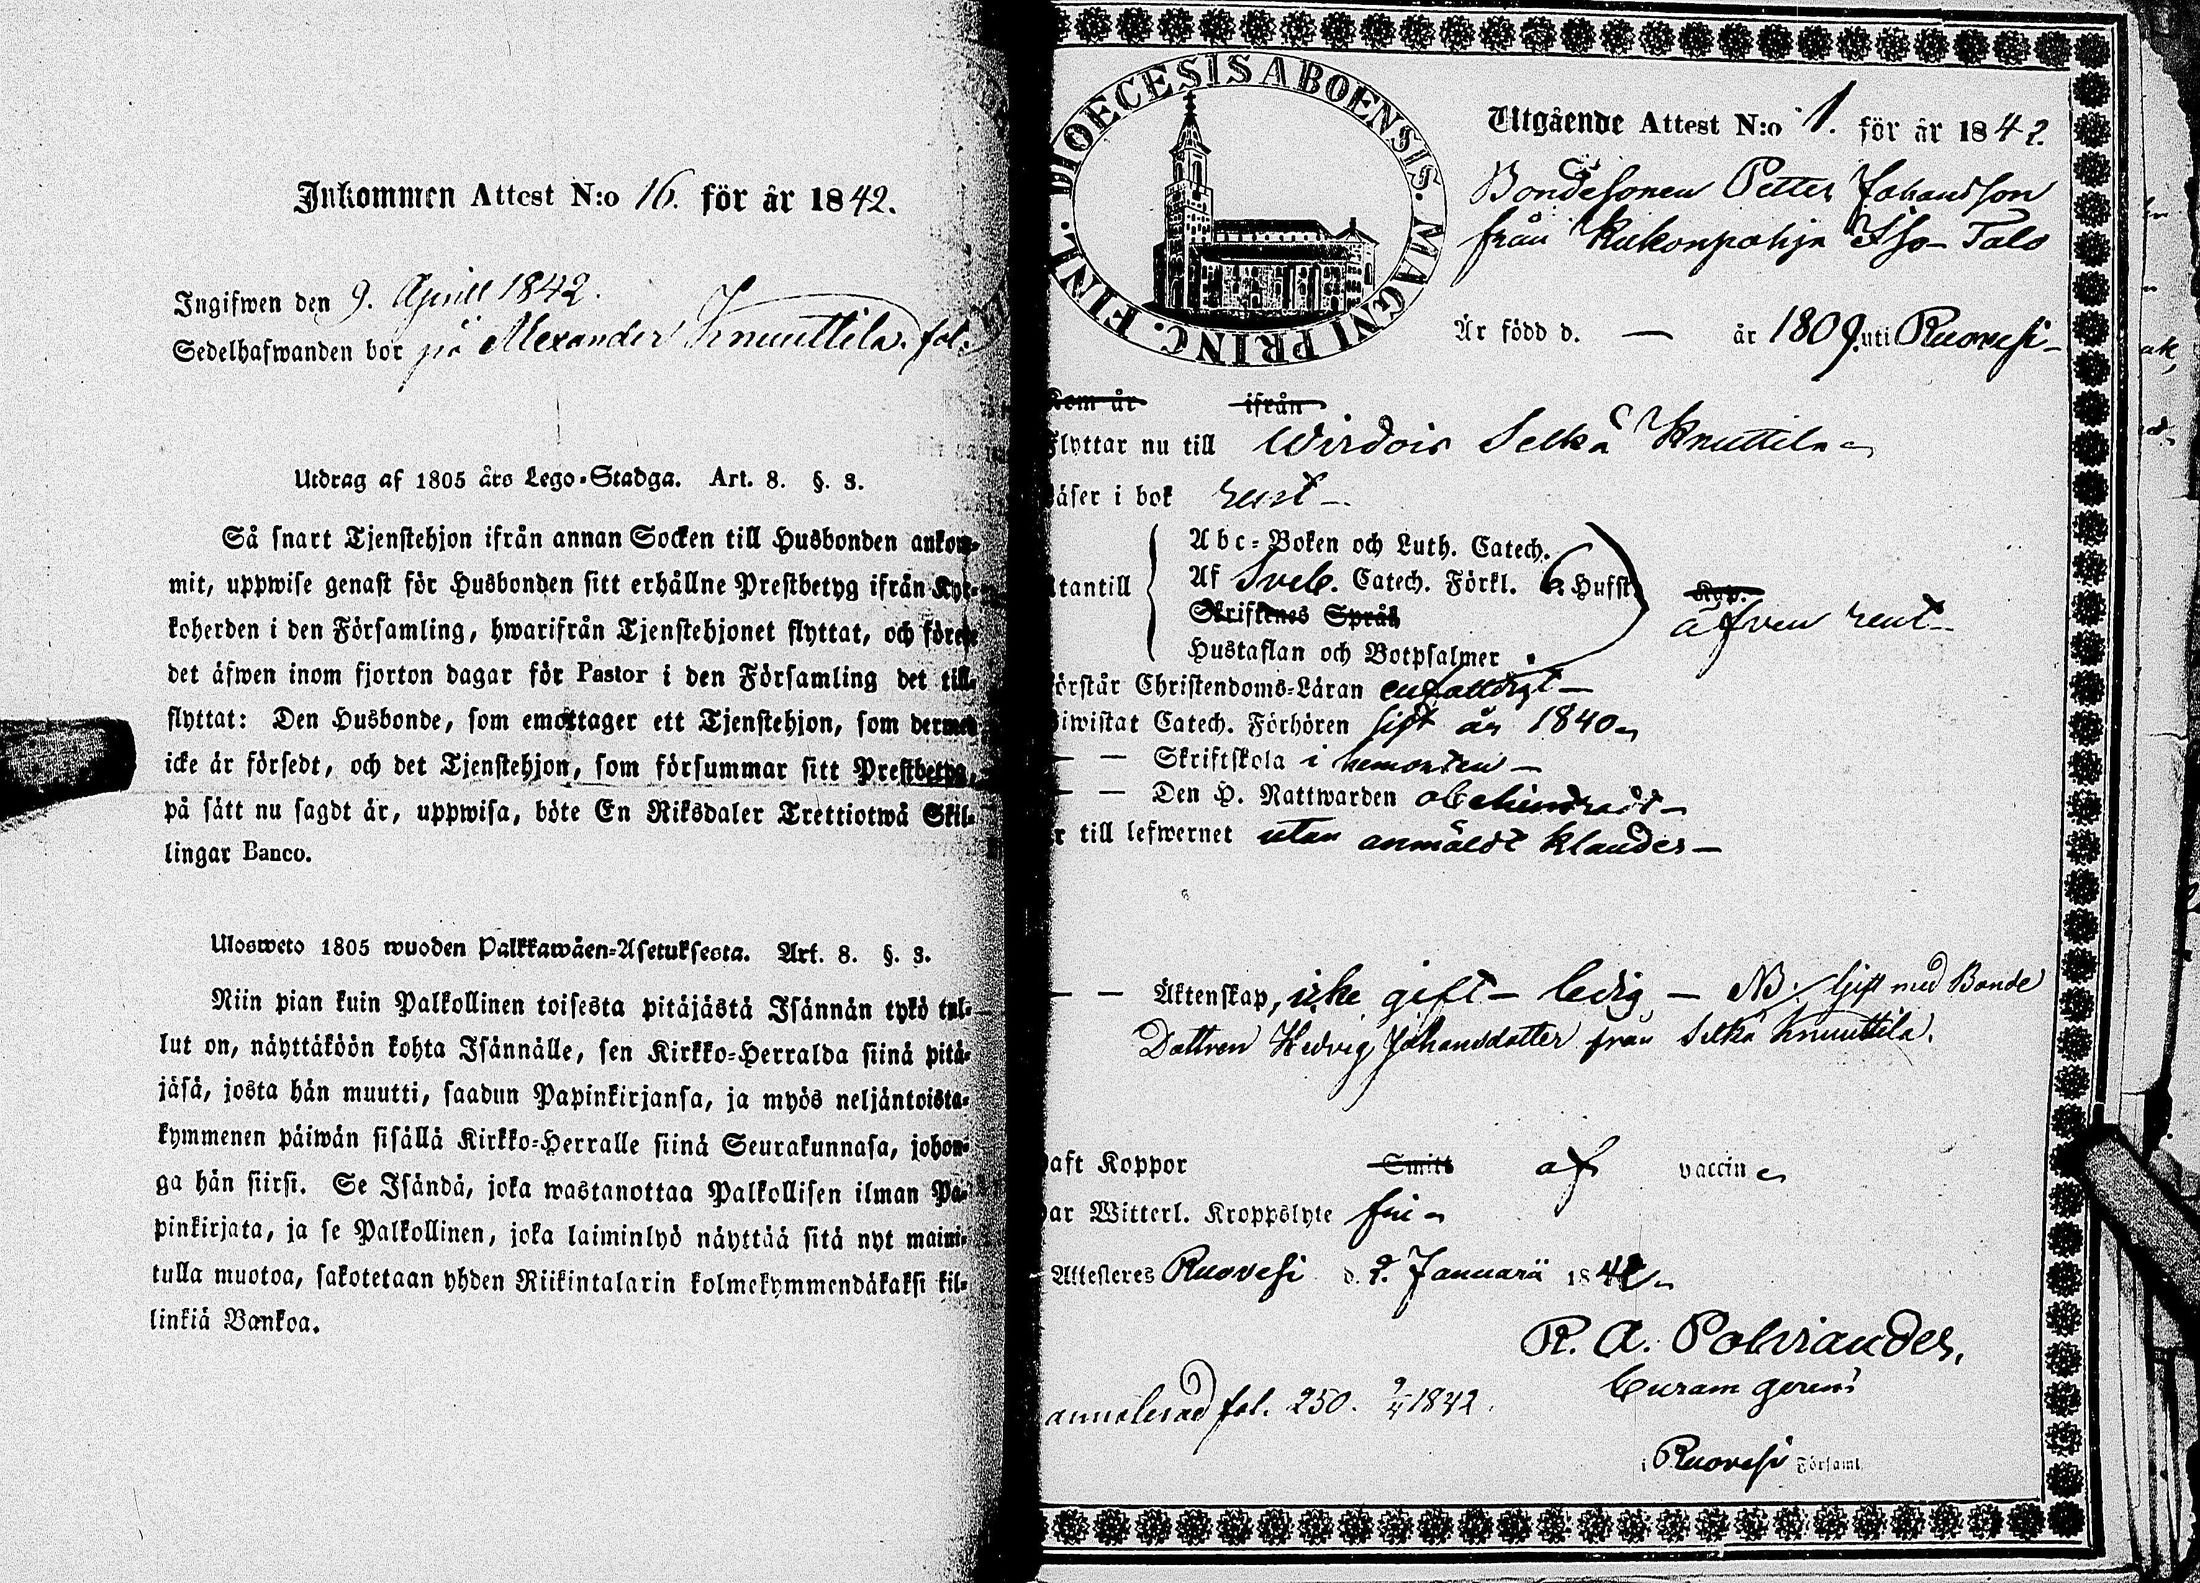 Inkommen Attest N:o 16. för år 1842.
Ingifwen den 9. Aprill 1842.
Sedelhafwanden bor på Alexander Knuuttila. fol.
Utdrag af 1805 års Lego-Stadga. Art. 8. §. 3.
Så snart Tjenstehjon ifrån annan Socken till Husbonden ankom-
mit, uppwise genast för Husbonden sitt erhållne Prestbetyg ifrån Kyr-
koherden i den Församling, hwarifrån Tjenstehjonet flyttat, och förete
det äfwen inom fjorton dagar för Pastor i den Församling det till-
flyttat: Den Husbonde, som emottager ett Tjenstehjon, som dermed
icke är försedt, och det Tjenstehjon, som försummar sitt Prestbetyg,
på sätt nu sagdt är, uppwisa, böte En Riksdaler Trettiotwå Skil-
lingar Banco.
Ulosweto 1805 wuoden Palkkawäen-Asetuksesta. Art. 8. §. 3.
Niin pian kuin Palkollinen toisesta pitäjästä Isännän tykö tul-
lut on, näyttäköön kohta Isännälle, sen Kirkko-Herralda siinä pitä-
jäsä, josta hän muutti, saadun Papinkirjansa, ja myös neljäntoista-
kymmenen päiwän sisällä Kirkko-Herralle siinä Seurakunnasa, johon-
ga hän siirsi. Se Isändä, joka wastanottaa Palkollisen ilman Pa-
pinkirjata, ja se Palkollinen, joka laiminlyö näyttää sitä nyt maini-
tulla muotoa, sakotetaan yhden Riikintalarin kolmekymmendäkaksi kil-
linkiä Bankoa.
DIOECESIS ABOENSIS. MAGNI PRINC. FINL.
Utgående Attest N:o 1. för år 1842.
Bondesonen Petter Johansson
från Kukonpohja Iso Talo
Är född d. — år 1809. uti Ruovesi
Kom år ifrån
Flyttar nu till Wirdois Selkä Knuttila
Läser i bok rent
Utantill
Abc-Boken och Luth. Catech.
Af Sveb. Catech. Förkl. Husst.
Skriftenes Språk
Hustaflan och Botpsalmer
Kap.
äfven rent
Förstår Christendoms-Läran enfaldigt
Biwistat Catech. Förhören sist år 1840
— — Skriftskola i hemorten
— — Den H. Nattwarden obehindradt
Är till lefwernet utan anmäldt klander
— — Äktenskap, icke gift - ledig - NB. Gift med Bonde
Dottren Hedvig Johansdotter från Selkä Knuuttila.
Haft Koppor Smitt af vaccine
Har Witterl. Kroppslyte fri
Attesteres Ruovesi d. 2. Januarii 1842
R. A. Polviander,
Curam gerens
i Ruovesi Församl.
annoterad fol. 250. 9/4 1842.